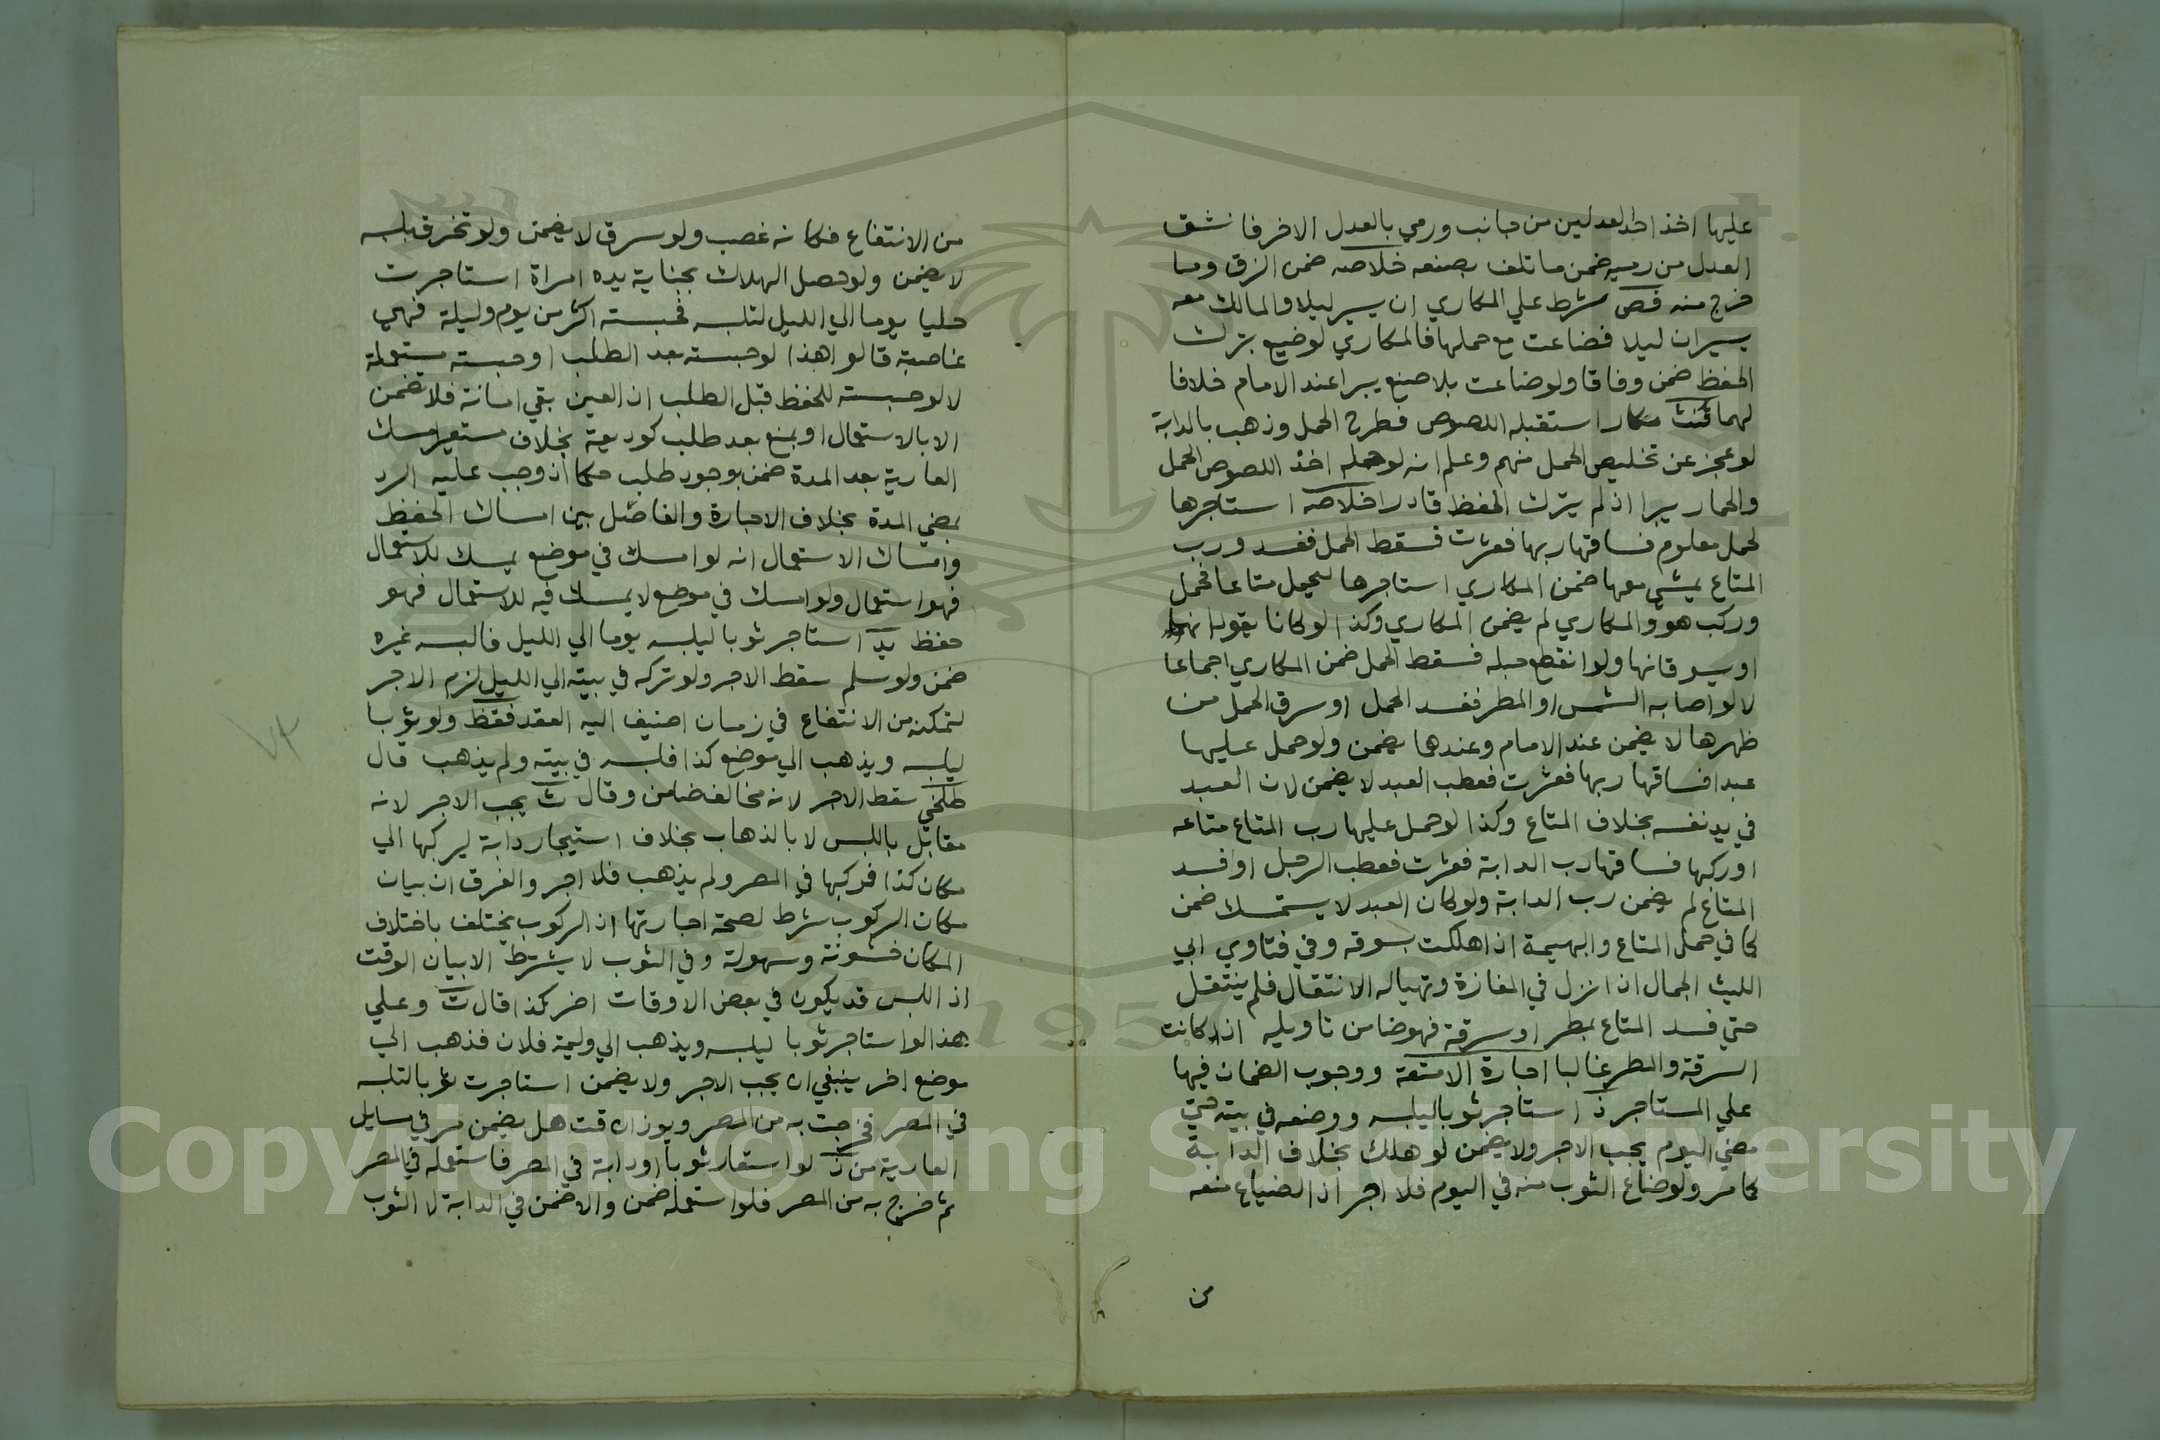 عليها اخذ احد العدلين من جانب ورمي بالعدل الاخر فانشق
العدل من رميه ضمن ما تلف بصنعه خلاصه ضمن الزق وما
خرج منه فص شرط علي المكاري ان يسير ليلا والمالك معه
يسيران ليلا فضاعت مع حملها فالمكاري لو ضيع بترك
الحفظ ضمن وفاقا ولو ضاعت بلا صنع يبرا عند الامام خلافا
لهما مكار استقبله اللصوص فطرح الحمل وذهب بالدابة
لو عجز عن تخليص الحمل منهم وعلم انه لو حمله اخذ اللصوص الحمل
والحمار يبرا اذ لم يترك الحفظ قادرا خلاصه استاجرها
لحمل معلوم فساقها ربها فعثرت فسقط الحمل ففسد ورب
المتاع يمشي معها ضمن المكاري استاجرها ليحمل متاعا فحمل
وركب هو والمكاري لم يضمن المكاري وكذا لو كانا يقودانها
او يسوقانها ولو انقطع حبله فسقط الحمل ضمن المكاري اجماعا
لا لو اصابه الشمس او المطر ففسد الحمل او سرق الحمل من
ظهرها لا يضمن عند الامام وعندهما يضمن ولو حمل عليها
عبدا فساقها ربها فعثرت فعطب العبد لا يضمن لان العبد
في يد نفسه بخلاف المتاع وكذا لو حمل عليها رب المتاع متاعه
اوركبها فساقها رب الدابة فعثرت فعطب الرجل او افسد
المتاع لم يضمن رب الدابة ولو كان العبد لا يستمسك ضمن
كما في حمل المتاع والبهيمة اذا هلكت بسوقه وفي فتاوي ابي
الليث الجمال اذا نزل في المفازة وتهياله الانتقال فلم ينتقل
حتي فسد المتاع بمطر او سرقة فهو ضامن تاويله اذا كانت
السرقة والمطر غالبا اجارة الامتعة ووجوب الضمان فيها
علي المستاجر ذ استاجر ثوبا ليلبسه ووضعه في بيته حتي
مضي اليوم يجب الاجر ولا يضمن لو هلك بخلاف الدابة
كما مر ولو ضاع الثوب منه في اليوم فلا اجر اذ الضياع منعه
من
من الانتفاع فكانه غصب ولو سرق لا يضمن ولو تخرق بلبسه
لا يضمن ولو حصل الهلاك بجناية يده امراة استاجرت
حليا يوما الي الليل لتلبسه فحبسته اكثر من يوم وليلة فهي
غاصبة قالوا هذا لو حبسته بعد الطلب او حبسته مستعملة
لا لو حبسته للحفظ قبل الطلب اذ العين بقي امانة فلا تضمن
الا بالاستعمال او بمنع بعد طلب كوديعة بخلاف مستعير امسك
العارية بعد المدة ضمن بوجود طلب حكما اذ وجب عليه الرد
بمضي المدة بخلاف الاجارة والفاصل بين امساك الحفظ
وامساك الاستعمال انه لو امسك في موضع يمسك للاستعمال
فهو استعمال ولو امسك في موضع لا يمسك فيه للاستعمال فهو
حفظ استاجر ثوبا ليلبسه يوما الي الليل فالبسه غيره
ضمن ولو سلم سقط الاجر ولو تركه في بيته الي الليل لزم الاجر
لتمكنه من الانتفاع في زمان اضيف اليه العقد فقظ ولو ثوبا
ليلبسه ويذهب الي موضع كذا فلبسه في بيته ولم يذهب قال
سقط الاجر لانه مخالف ضامن وقال ث يجب الاجر لانه
مقابل باللبس لا بالذهاب بخلاف استيجار دابة ليركبها الي
مكان كذا فركبها في المصر ولم يذهب فلا اجر والفرق ان بيان
مكان الركوب شرط لصحة اجارتها اذ الركوب يختلف باختلاف
المكان خشونة وسهولة وفي الثوب لا يشترط الا بيان الوقت
اذ اللبس قد يكون في بعض الاوقات اضر كذا قال ث وعلي
هذا لو استاجر ثوبا ليلبسه ويذهب الي وليمة فلان فذهب الي
موضع اخر ينبغي ان يجب الاجر ولا يضمن استاجرت ثوبا لتلبسه
في المصر فخرجت به من المصر ويوزان قت هل يضمن مر في مسايل
العارية من ذ لو استعار ثوبا او دابة في المصر فاستعمله في المصر
ثم خرج به من المصر فلو استعمله ضمن والا ضمن في الدابة لا الثوب
٧٣
Copyright © King Saud University
1957